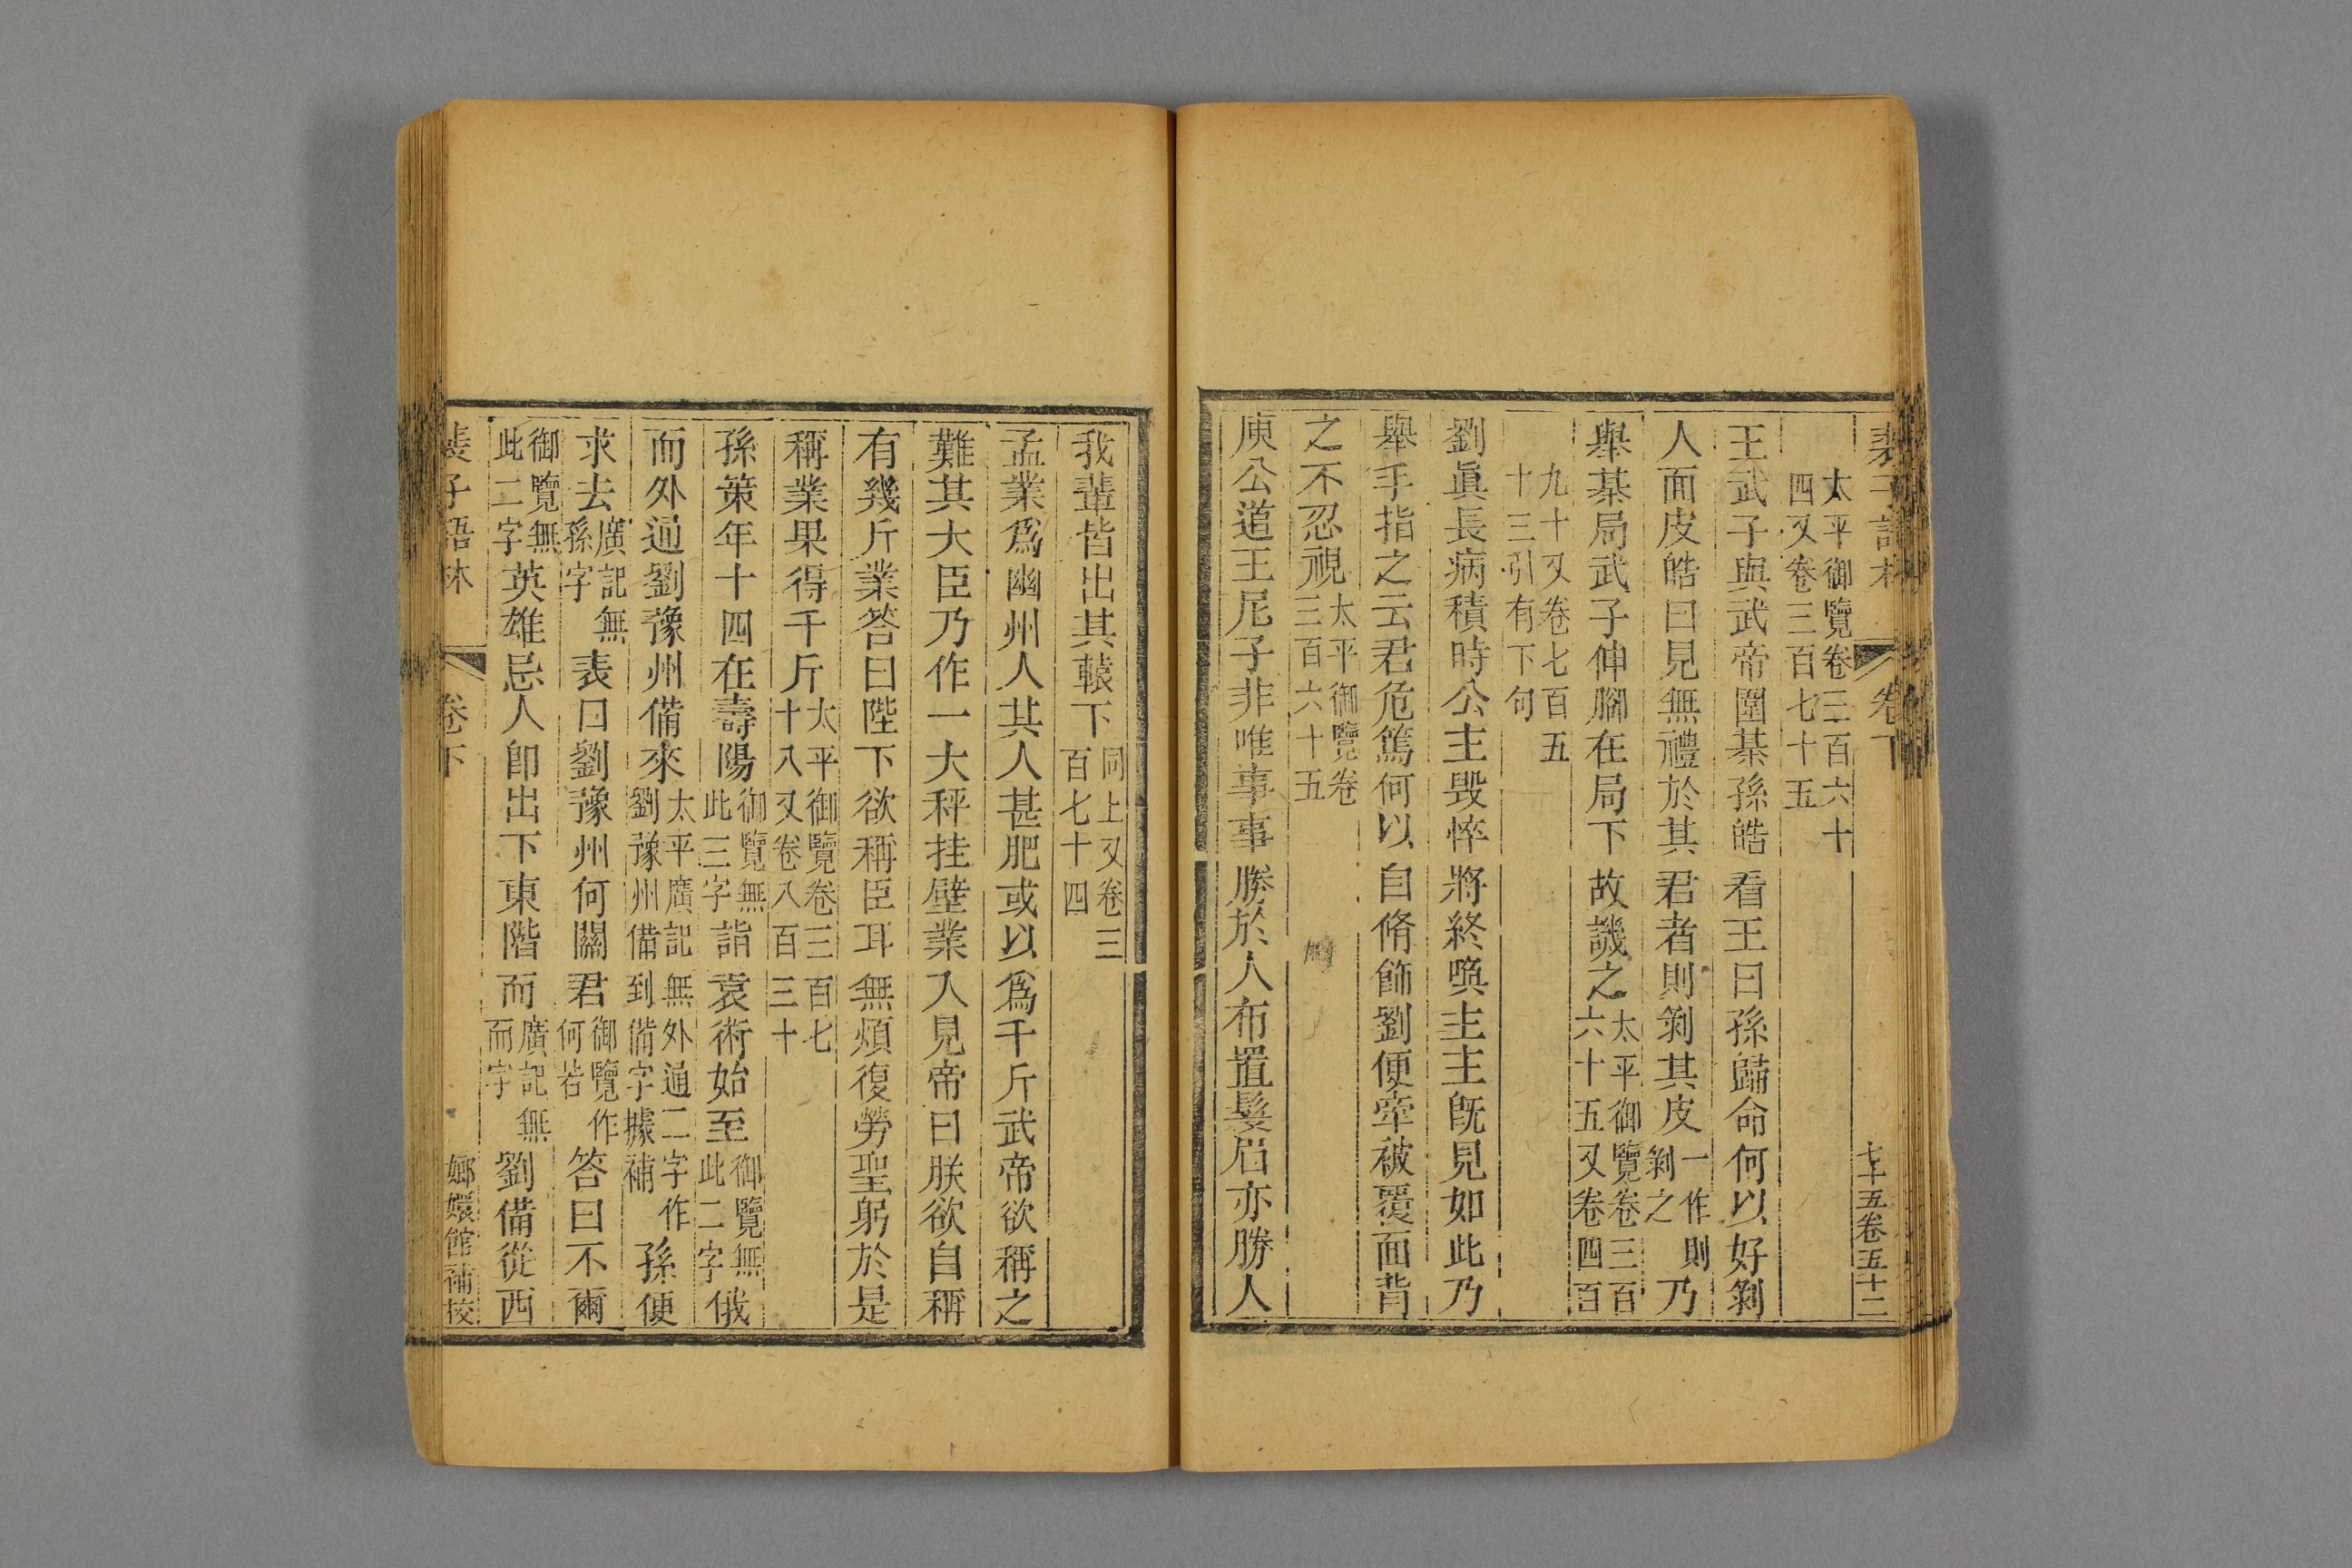 裴子語林 卷下 七十五卷五十二
太平御覽卷三百六十四又卷三百七十五
王武子與武帝圍棊孫皓看王曰孫歸命何以好剝
人面皮皓曰見無禮於其君者則剝其皮一作則剝之乃
舉棊局武子伸腳在局下故譏之太平御覽卷三百六十五又卷四百
九十又卷七百五十三引有下句
劉眞長病積時公主毀悴將終喚主主旣見如此乃
舉手指之云君危篤何以自脩飾劉便牽被覆面背
之不忍視太平御覽卷三百六十五
庾公道王尼子非唯事事勝於人布置鬚眉亦勝人
我輩皆出其轅下同上又卷三百七十四
孟業爲幽州人其人甚肥或以爲千斤武帝欲稱之
難其大臣乃作一大秤挂壁業入見帝曰朕欲自稱
有幾斤業答曰陛下欲稱臣耳無煩復勞聖躬於是
稱業果得千斤太平御覽卷三百七十八又卷八百三十
孫策年十四在壽陽御覽無此三字詣袁術始至御覽無此二字俄
而外通劉豫州備來太平廣記無外通二字作劉豫州備到備字據補孫便
求去廣記無孫字袁曰劉豫州何關君御覽作何若答曰不爾
御覽無此二字英雄忌人卽出下東階而廣記無而字劉備從西
裴子語林 卷下 嫏嬛館補校